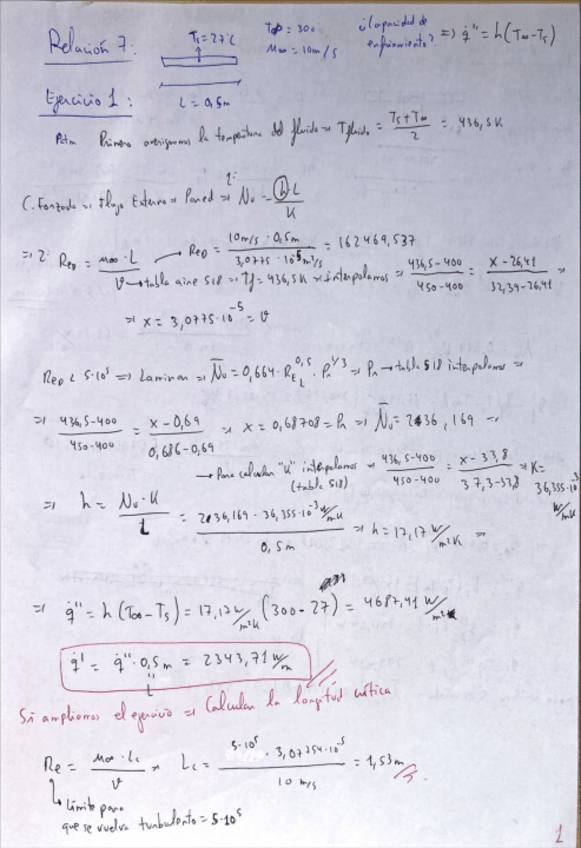 Relación 7:
Ts = 27°C
T∞ = 300
M∞ = 10 m/s
¿Capacidad de enfriamiento? => q̇'' = h(T∞ - Ts)
L = 0,5m
Ejercicio 1:
Patm Primero averiguamos la temperatura del fluido => Tfluido = (Ts + T∞)/2 = 436,5K
C. Forzada => Flujo Externo => Pared => 1º: Nu = h·L/K
=> 2º Re_D = M∞·L/ν → Re_D = 10m/s · 0,5m / 3,0775·10⁻⁵ m²/s = 162469,537
ν → tabla aire 518 => Tf = 436,5K => interpolamos => (436,5-400)/(450-400) = (x-26,41)/(32,39-26,41) =>
=> x = 3,0775·10⁻⁵ = ν
Re_D < 5·10⁵ => Laminar => N̄u = 0,664 · Re_L^0,5 · Pr^1/3 => Pr → tabla 518 interpolamos =>
=> (436,5-400)/(450-400) = (x-0,69)/(0,686-0,69) => x = 0,68708 = Pr => N̄u = 236,169 =>
→ Para calcular "K" interpolamos (tabla 518) => (436,5-400)/(450-400) = (x-33,8)/(37,3-33,8) => K = 36,355·10⁻³ W/mK
=> h = Nu·K/L = 236,169 · 36,355·10⁻³ W/mK / 0,5m => h = 17,17 W/m²K =>
=> q̇'' = h(T∞ - Ts) = 17,17 W/m²K (300 - 27) = 4687,41 W/m²
q̇' = q̇'' · 0,5m = 2343,71 W/m
L
Si ampliamos el ejercicio => Calcular la longitud crítica
Re = M∞·Lc/ν => Lc = 5·10⁵ · 3,07754·10⁻⁵ / 10 m/s = 1,53m
Límite para
que se vuelva turbulento = 5·10⁵
1